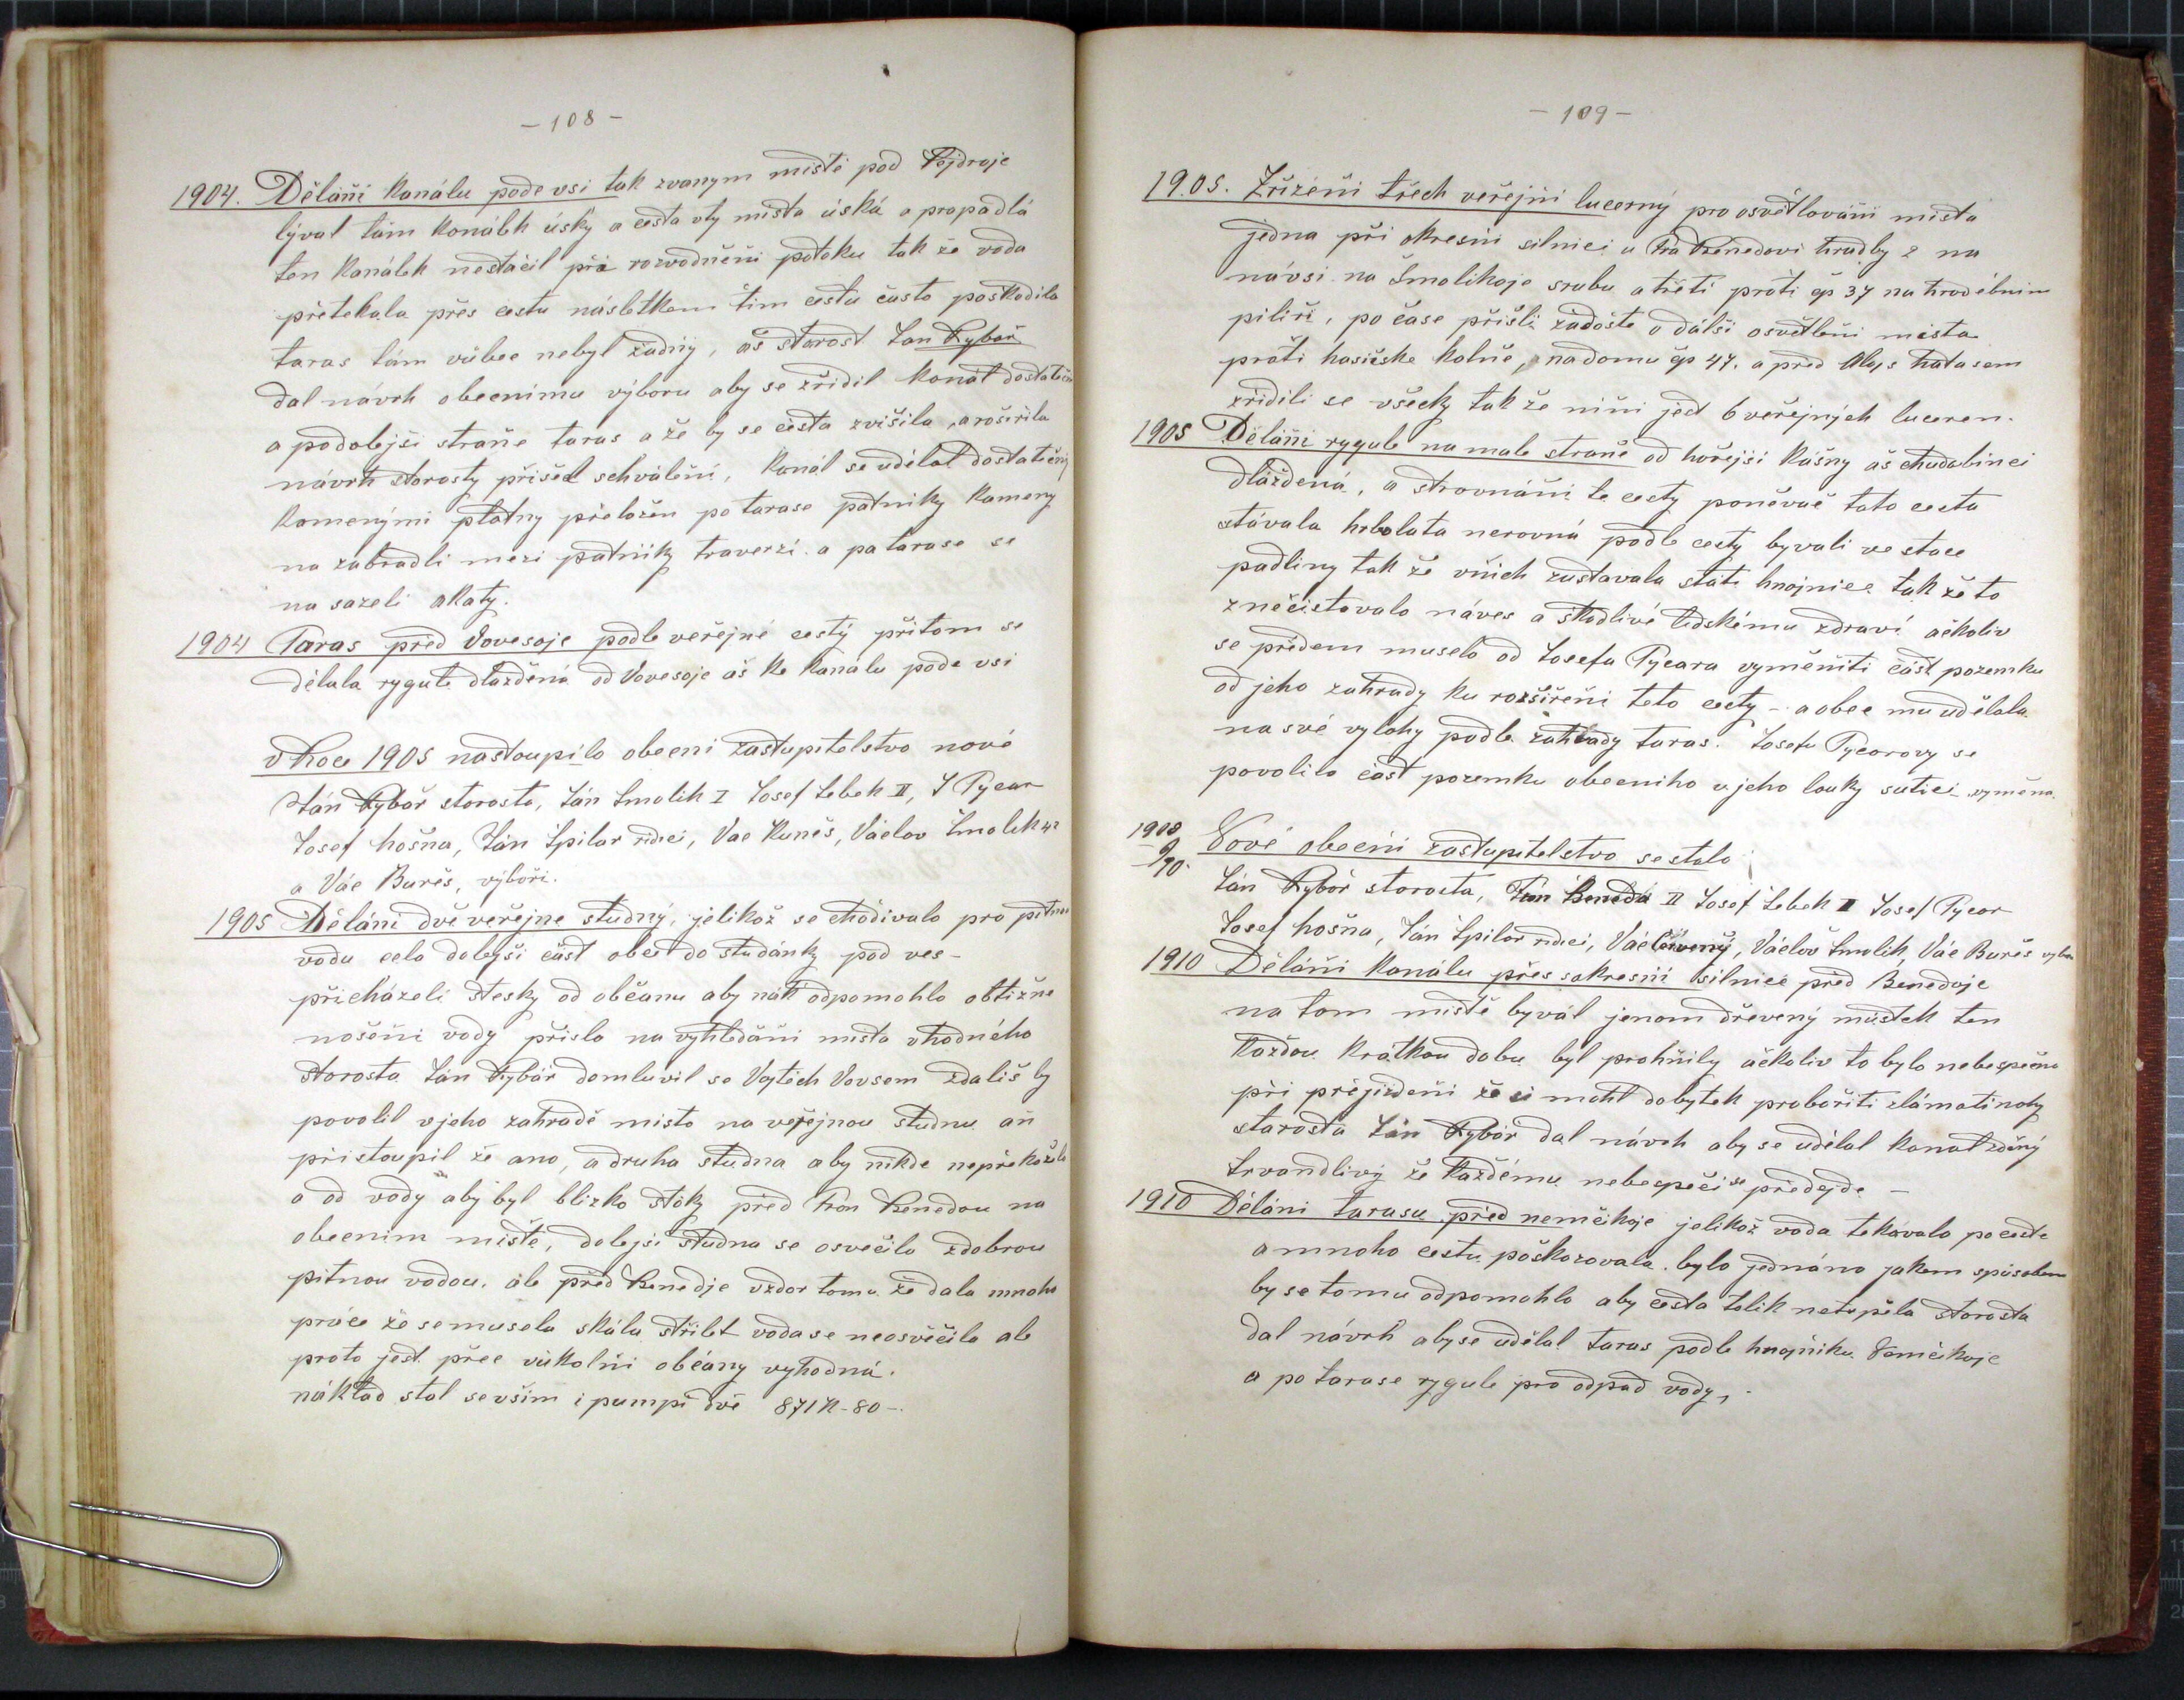 - 108 -
1904. Děláni kanálu pode vsi tak zvanym mistě pod Pejdroje
býval tám konálek úský a cesta oty mista úská a propadlá
ten kanálek nestáčil při rozvodněni potoku tak že voda
přetekala přes cestu následkem tim cestu často poškodila
taras tám vůbec nebyl žádný, až starost Jan Rybář
dal návrh obecnimu výboru aby se zřídil konál dostatečn
a podolejši straně taras a že by se cesta zvišila a rošiřila
návrh starosty přišel schváleni, Konál se udělal dostatečný
kamenými platny přeložen po tarase patniky kameny
na zabradli mezi patniky traverzi a pa tarase se
na sazeli akaty.
1904 Taras pred Vovesoje podle veřejné cestý přitom se
dělala rygule dlažděná od Vovesoje áš ke kanálu pode vsi
v Roce 1905 nastoupilo obecni zastupitelstvo nové
Ján Rybář starosta, Ján Smolik I Josef Lebek II, J Pycar
Josef hošna, Ján Špilar řidici, Vac Kuneš, Václav Smolik 42
a Vác Bureš, výboři.
1905 Děláni dvě veřejne studný, jelikož se chodivalo pro pitnou
vodu cela dolejši část obce do studánky pod ves -
přicházeli stesky od občanu aby nák odpomohlo obtižne
nošeni vody přislo na vyhledáni mista vhodného
Starosta Ján Rybář domluvil se Vojtěch Vovsem zdališ by
povolil vjeho zahradě misto na veřejnou studnu an
přistoupil že ano, a druha studna aby nikde nepřekažela
a od vody aby byl blizko stoky před Fran Benedou na
obecnim mistě, dolejši studna se osvečila zdobrou
pitnou vodou. ále před Benedje vzdor tomu že dala mnoho
práce že se musela skála střilet voda se neosvěčila ale
proto jest přec vůkolni občany vyhodná.
náklad stal sevšim i pumpi dvě 871 K - 80 -.
- 109 -
1905. Zřizeni třech veřejni lucerný pro osvětlováni mista
jedna při okresni silnici u Fra Benedovi hradby 2 na
návsi na Smolikoje srubu a třeti proti čp 37 na hrodebnim
piliři, po čase přišli žádoste o dálši osvětleni mista
proti hasičske kolně, na domu čp 47. a před Aloys hatasem
zřidili se všecky tak že nini jest 6 veřejných luceren.
1905 Děláni rygule na male straně od hořejši kašny áš chudobinci
dlážděná, a strovnáni te cesty poněvač tato cesta
stávala hrbolata nerovná podle cesty byvali ve stace
padliny tak že vnich zustavala státi hnojnice tak že to
znečistovalo náves a škodlivé lidskému zdraví ačkoliv
se předem muselo od Josefa Pycara vyměniti část pozemku
od jeho zahrady ku rozšířeni teto cesty - a obec mu udělala
na své vylohy podle zahrady taras. Josefu Pycarovy se
povolilo část pozemku obecniho u jeho louky sutici výměna.
1908
9/10. Nové obecni zastupitelstvo se stalo
Ján Rybář starosta, Fran Beneda II Josef Lebek II Josef Pycar
Josef hošna, Ján Špilar řidici, Vác Červený, Václav Smolik, Vác Bureš vybo
1910 Děláni kanálu přes sokresni silnice před Benedoje
na tom mistě byvál jenom dřevený můstek ten
každou krátkou dobu byl prohnily ačkoliv to bylo nebespečno
při přejizdeni že si mohl dobytek probořiti zlámati nohy
starosta Ján Rybář dal návrh aby se udělal kanál zděný
trvandlivý že každému nebespeči se předejde -
1910 Děláni tarasu před neměikoje jelikož voda tekávala po cestě
a mnoho cestu poškozovala. bylo jednáno jakem spůsobem
by se tomu odpomohlo aby cesta tolik netrpěla starosta
dal návrh aby se udělal taras podle hnojniku Neměikoje
a po tarase rygule pro odpad vody,